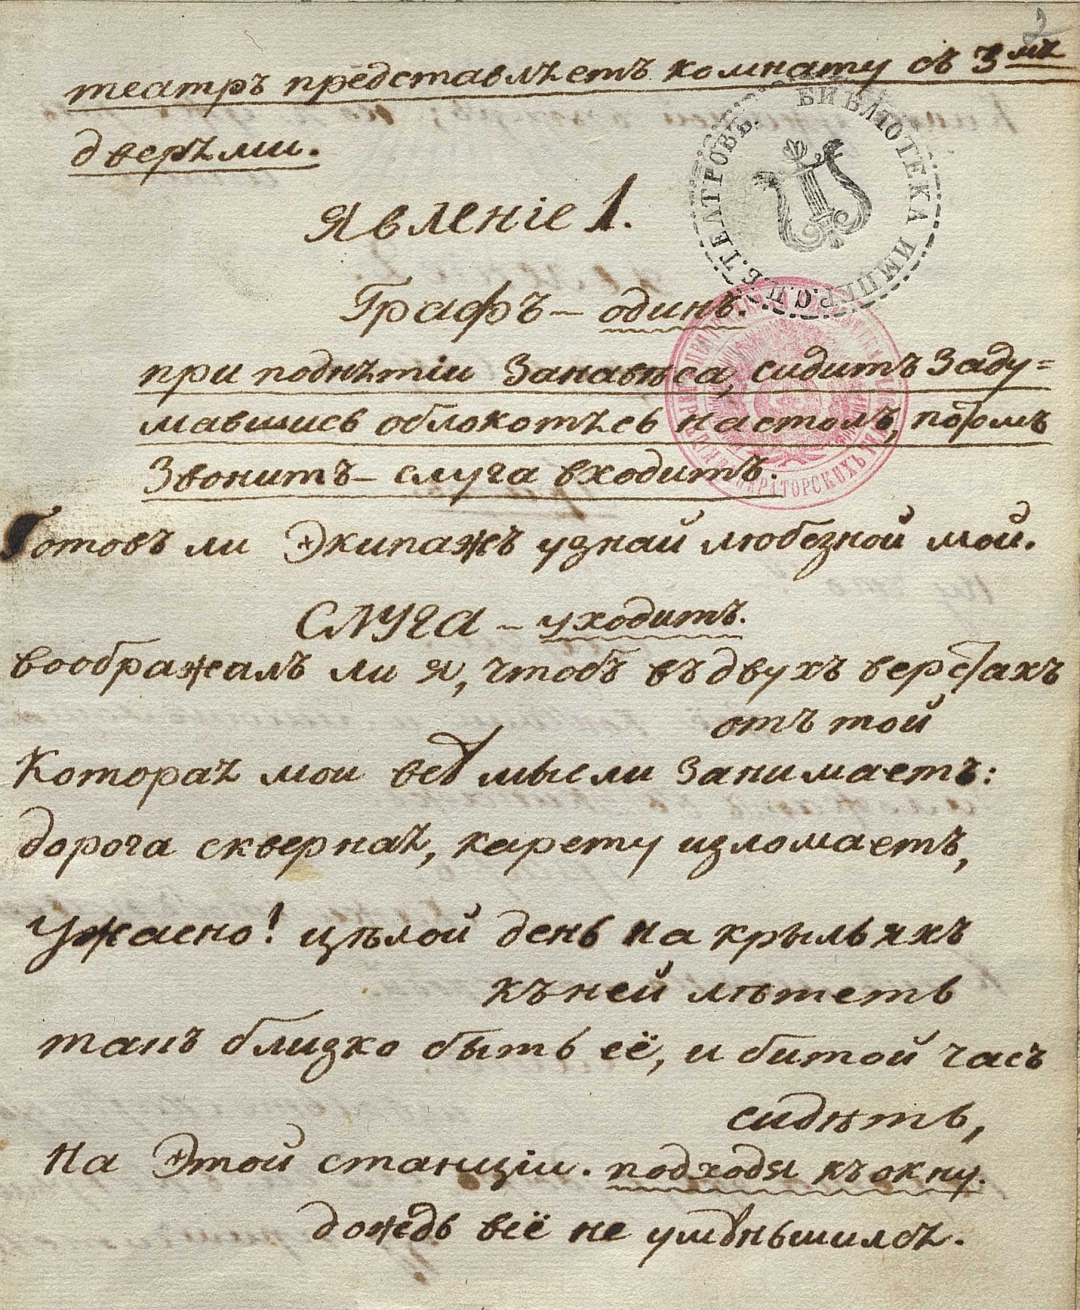 2
театръ представлѣетъ комнату съ 3мѣ
дверѣми.
Явленіе 1.
Графъ — одинъ.
при поднѣтіи Занавѣса, сидитъ Заду=
мавшись облокотѣсь на столъ, потомъ
Звонитъ — слуга входитъ.
Готовъ ли Экипажъ узнай любезной мой.
Слуга — уходитъ.
воображалъ ли я, чтобъ въ двухъ верстахъ
отъ той
Котораѣ мои всѣ мысли Занимаетъ:
дорога сквернаѣ, карету изломаетъ,
Ужасно! цѣлой день на крыльяхъ
къ ней лѣтеть
такъ близко быть её, и битой часъ
сидѣть,
На Этой станціи. подходя къ окну.
дождь всё не уменьшилсѣ.
БИБЛІОТЕКА ИМПЕР. С.П.Б. ТЕАТРОВЪ.